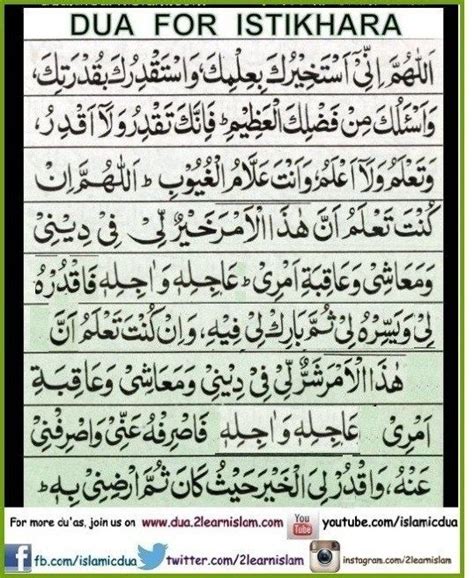 DUA FOR ISTIKHARA
اَللّٰهُمَّ اِنِّىْ اَسْتَخِيْرُكَ بِعِلْمِكَ، وَاسْتَقْدِرُكَ بِقُدْرَتِكَ،
وَاَسْئَلُكَ مِنْ فَضْلِكَ الْعَظِيْمِ ؕ فَاِنَّكَ تَقْدِرُ وَلَآ اَقْدِرُ،
وَتَعْلَمُ وَلَآ اَعْلَمُ، وَاَنْتَ عَلَّامُ الْغُيُوْبِ ؕ اَللّٰهُمَّ اِنْ
كُنْتَ تَعْلَمُ اَنَّ هٰذَا الْاَمْرَ خَيْرٌ لِّىْ فِىْ دِيْنِىْ
وَمَعَاشِىْ وَعَاقِبَةِ اَمْرِىْ ؕ عَاجِلِهٖ وَاٰجِلِهٖ فَاقْدُرْهُ
لِىْ وَيَسِّرْهُ لِىْ ثُمَّ بَارِكْ لِىْ فِيْهِ، وَاِنْ كُنْتَ تَعْلَمُ اَنَّ
هٰذَا الْاَمْرَ شَرٌّ لِّىْ فِىْ دِيْنِىْ وَمَعَاشِىْ وَعَاقِبَةِ
اَمْرِىْ عَاجِلِهٖ وَاٰجِلِهٖ فَاصْرِفْهُ عَنِّىْ وَاصْرِفْنِىْ
عَنْهُ، وَاقْدُرْ لِىَ الْخَيْرَ حَيْثُ كَانَ ثُمَّ ارْضِنِىْ بِهٖ ؕ
For more du'as, join us on www.dua.2learnislam.com You Tube youtube.com/islamicdua
f fb.com/islamicdua twitter.com/2learnislam instagram.com/2learnislam